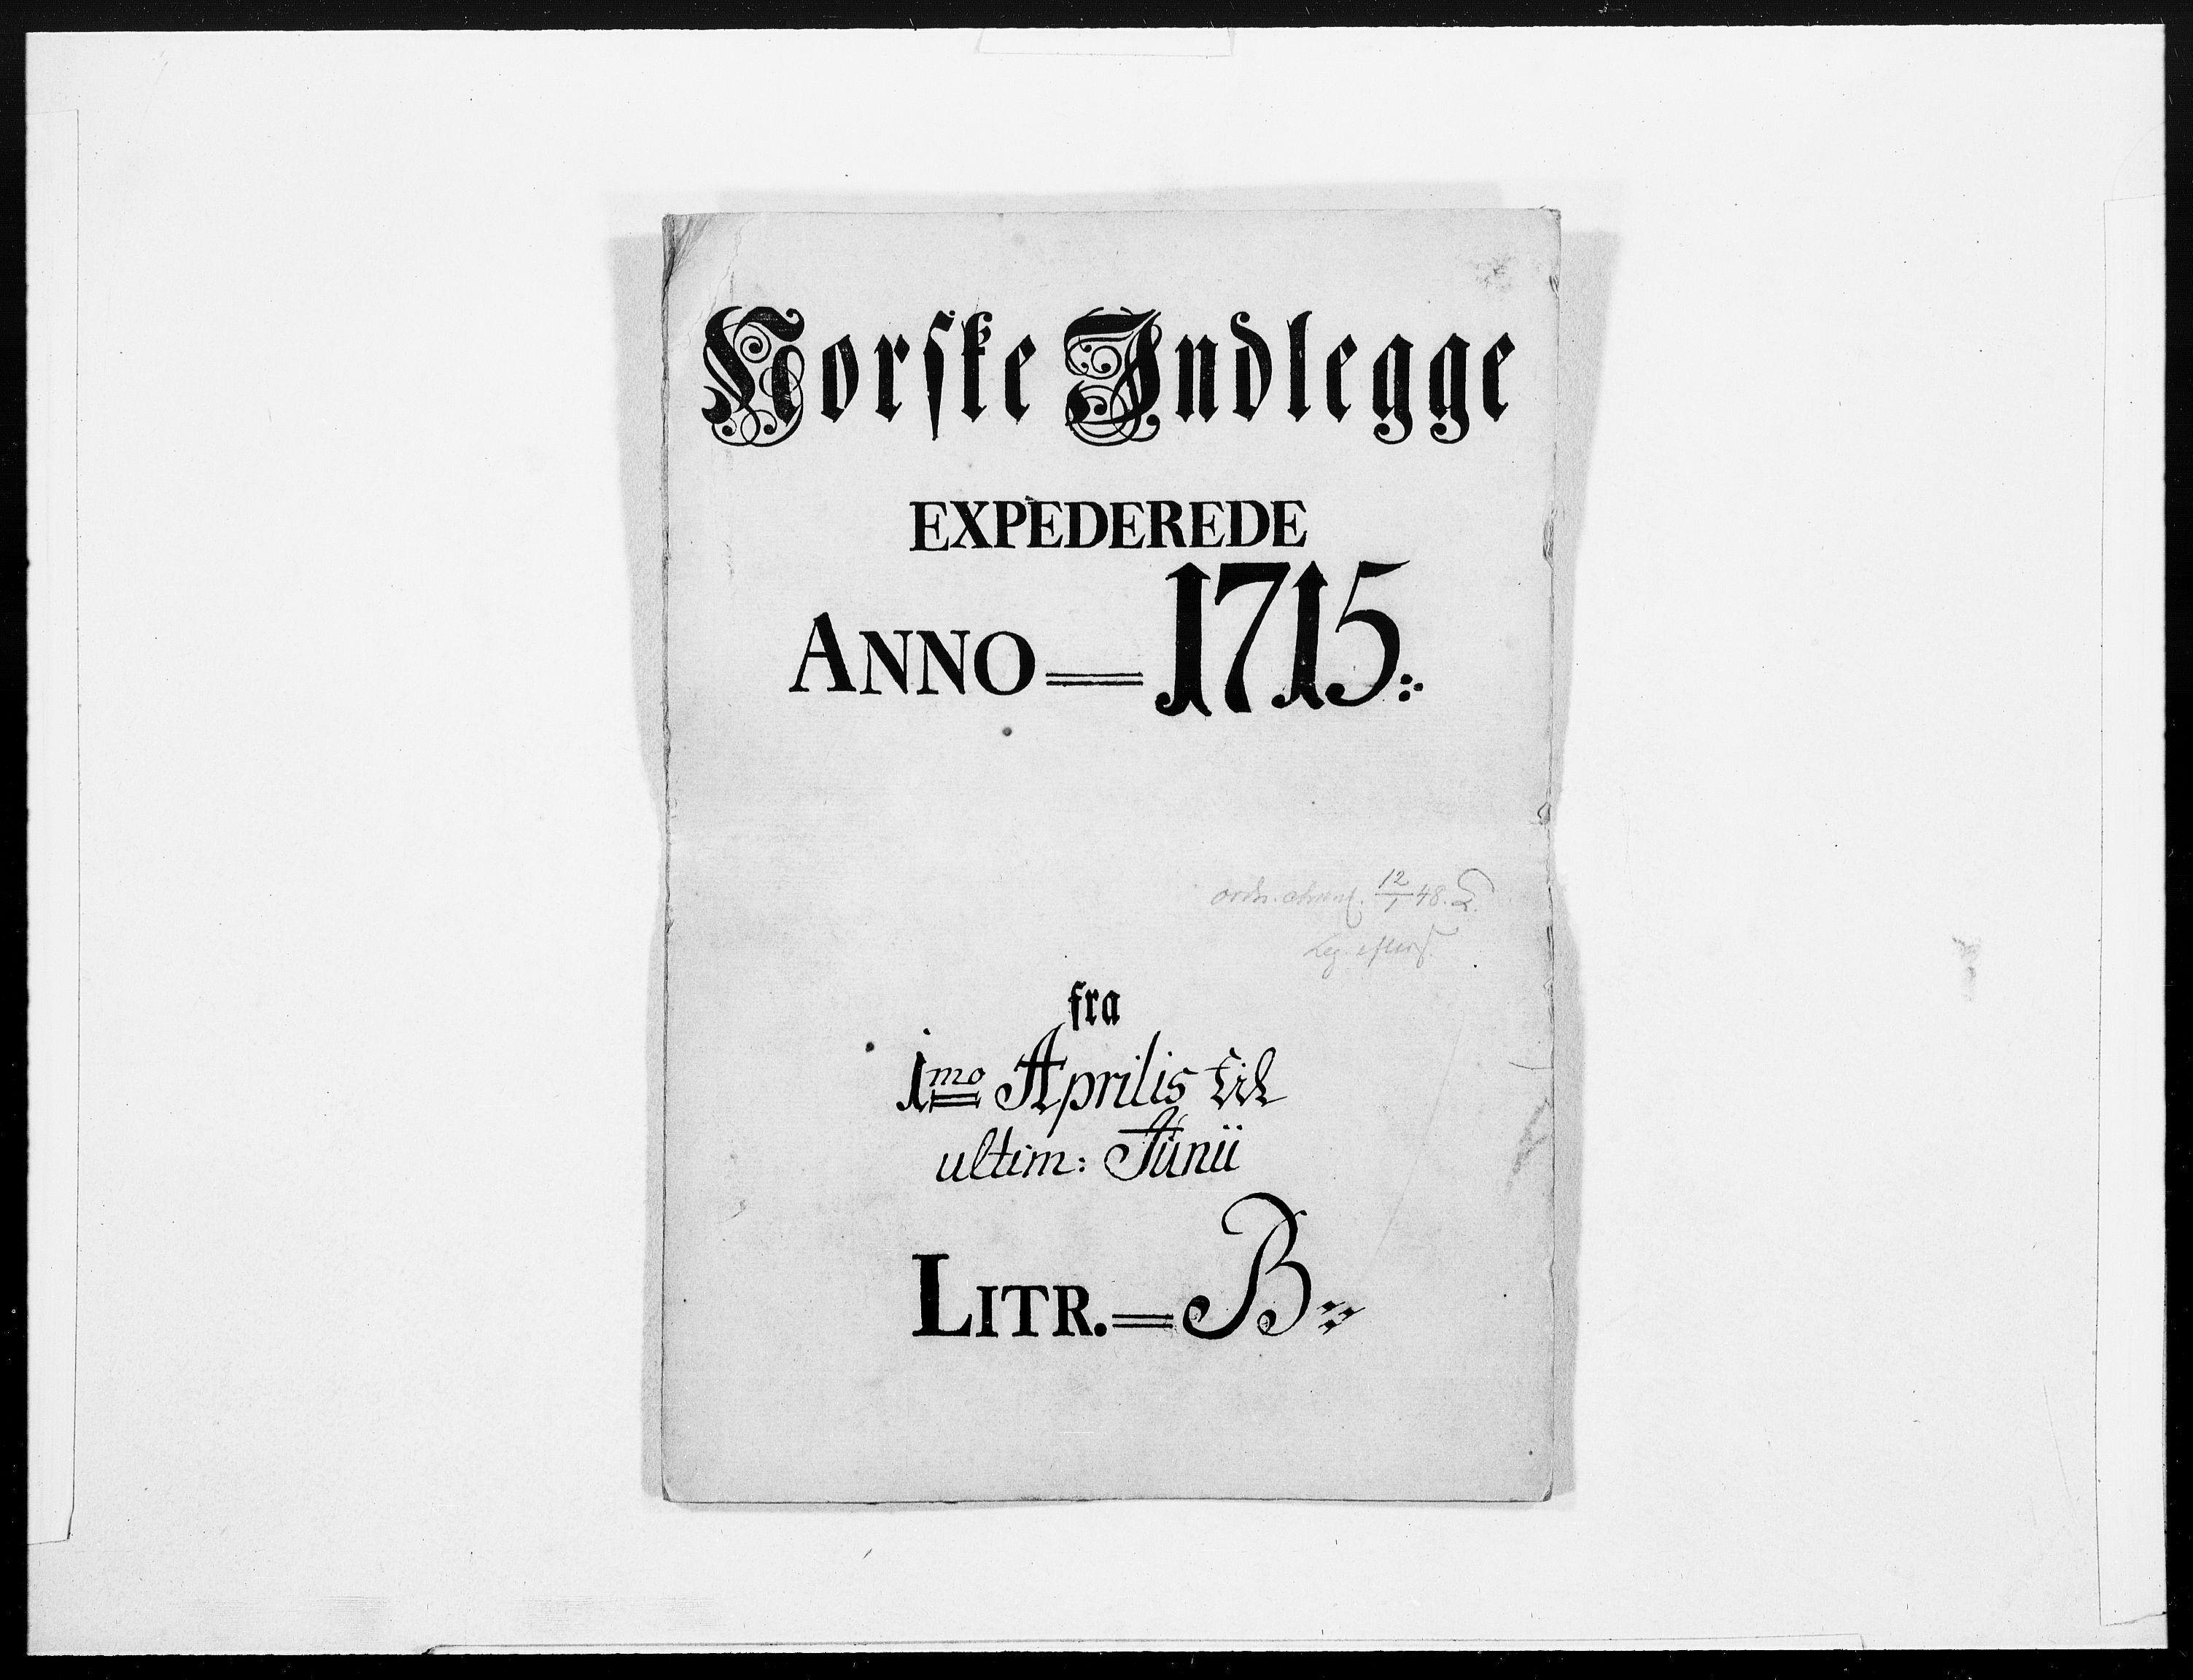 Norske Indlegge
EXPEDEREDE
ANNO = 1715
12/1 48.
fra
1mo Aprilis til
ultim: Junii
LITR. = B